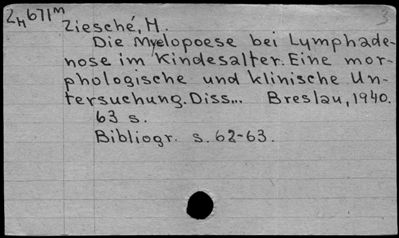 2H671m
3
Ziesché, H.
Die Myelopoese bei Lymphade-
nose im Kindesalter. Eine mor-
phologische und klinische Un-
tersuchung. Diss... Breslau, 1940.
63 s.
Bibliogr. s. 62-63.